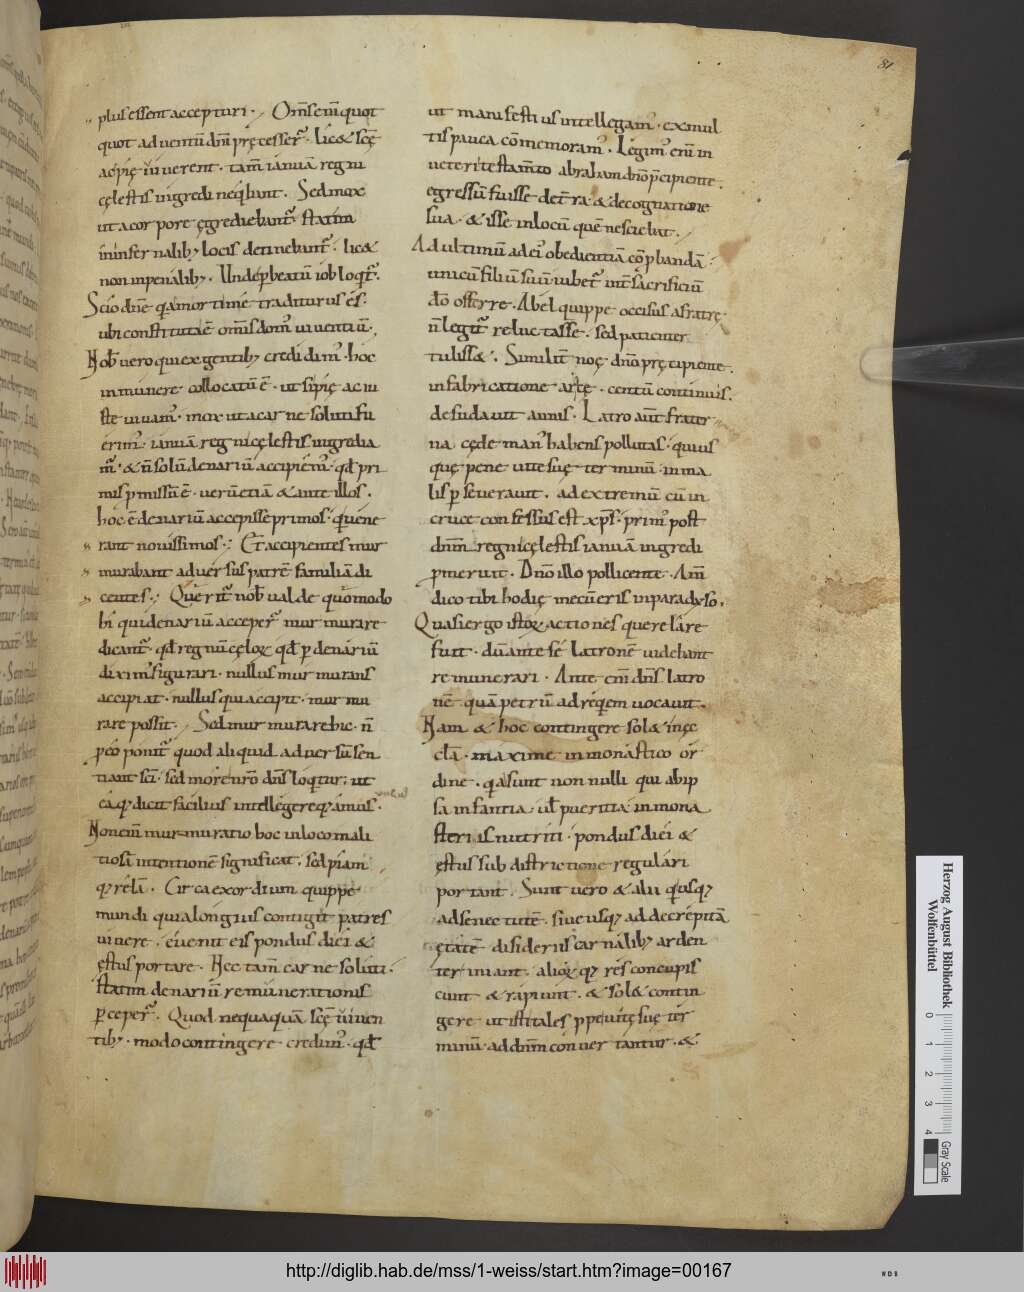 81
plus essent accepturi. Om̄s eni᷒ quot
quot aduentū dn̄i pręcesser̄. lic& scę
ac pię uiuerent. tam̄ ianuā regni
cęlestis ingredi neq̇bant. Sed mox
ut a corpore ęgrediebant᷒. statim
in infernalib; locis detinebant᷒. lic&
non in penalib;. Unde p̄ beatū iob loq̇t᷒.
Scio dn̄e q̇a morti me traditurus es.
ubi constituta ē omīs dom᷒ uiuentiū.
Nob̄ uero qui ex gentib; credidim᷒. hoc
in munere collocatū ē. ut si pię ac iu
ste uiuam᷒. mox ut a carne soluti fu
erim᷒. ianuā regni cęlestis ingredia
m᷒. & n̄ solū denariū accipiem᷒. qđ pri
mis p̄missū ē. uerū etiā & ante illos.
hoc ē denariū accepisse primos. q̇ uene
rant nouissimos. Et accipientes mur
murabant aduersus patrē familiā di
centes. Querit᷒ nob̄ ualde quomodo
hi qui denariū acceper̄ murmurare
dicant᷒. qđ regnū cęloꝝ qđ ꝑ denariū
dixim᷒ figurari. nullus murmurans
accipiat. nullus qui accipit. murmu
rare possit. Sed murmurare hic. n̄
ꝑ eo ponit᷒ quod aliquid aduersū sen
tiant sc̄i. sed more nr̄o dn̄s loq̇tur. ut
ea q; dicit facilius intellegere q;amus.
Non eni᷒ murmuratio hoc in loco mali
tiosā intentionē significat. sed piam
q;relā. Circa exordium quippe
mundi quia longius contigit patres
uiuere. euenit eis pondus diei &
ęstus portare. Nec tam̄ carne soluti.
statim denariū remunerationis
ꝑceper̄. Quod nequaquā scę uiuen
tib;. modo contingere credim᷒. qđ
ut manifestius intellegam᷒. ex mul
tis pauca cōmemoram᷒. Legim᷒ eni᷒ in
ueteri testam̄to abrahan dn̄o p̄cipiente.
egressū fuisse de t̄ra & de cognatione
sua. & isse in locū quē nesciebat.
Ad ultimū ad ei᷒ obedientiā cōꝑbandā.
unicū filiū suū iubet᷒ in t̄ sacrificiū
dō offerre. Abel quippe occisus a fratre.
n̄ legit᷒ reluctasse. sed patienter
tuliss&. Similit̄ noe dn̄o pręcipiente.
in fabricatione arcę. centū continuis.
desudauit annis. Latro aut̄ frater
na cęde man᷒ habens pollutas. quius
que pene uite suę terminū in ma
lis ꝑseuerauit. ad extremū cū in
cruce confessus est xp̄s. prim᷒ post
dn̄m regni cęlestis ianuā ingredi
ꝓmeruit. Dn̄o illo pollicente. Am̄
dico tibi hodie mecū eris in paradyso.
Quasi ergo istoꝝ actiones querelare
fuit. dū ante se latronē uidebant
remunerari. Ante eni᷒ dn̄s latro
nē quā petrū ad requiem uocauit.
Nam & hoc contingere sol& in ęc
clā. maxime in monastico or
dine. q̇a sunt non nulli qui ab ip
sa infantia ul̄ pueritia in mona
steriis nutriti. pondus diei &
ęstus sub districtione regulari
portant. Sunt uero & alii q̇ usq;
ad senectutē. siue usq; ad decrepitā
ętatē desideriis carnalib; arden
ter inuiant. alioꝝ q; res concupis
cunt & rapiunt. & sol& contin
gere ut isti tales ꝓpe uitę suę ter
minū ad dn̄m conuertantur. &
Herzog August Bibliothek
Wolfenbüttel
0 1 2 3 4
Gray Scale
http://diglib.hab.de/mss/1-weiss/start.htm?image=00167